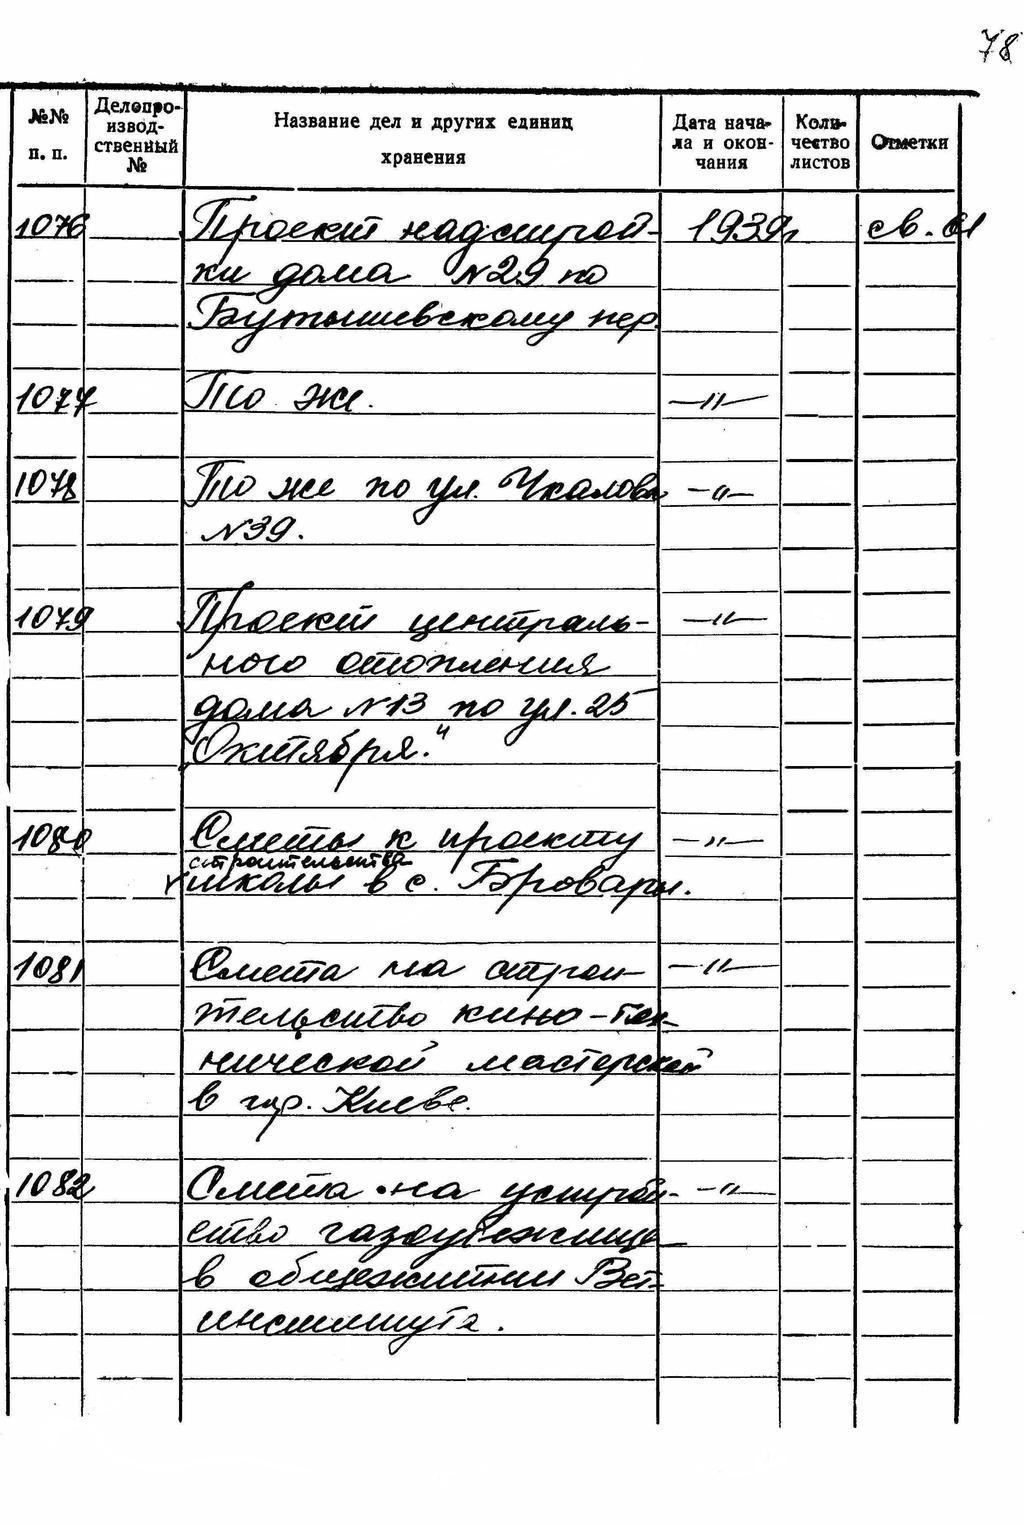 78
№№ п. п.
Делопроизводственный №
Название дел и других единиц хранения
Дата начала и окончания
Количество листов
Отметки
1076 Проект надстрой- 1939г св. 61
ки дома №29 по
Бутышевскому пер.
1077 То же. —"—
1078 То же по ул. Чкалова —"—
№39.
1079 Проект централь- —"—
ного отопления
дома №13 по ул. 25
Октября."
1080 Сметы к проекту —"—
строительства
школы в с. Бровары.
1081 Смета на строи- —"—
тельство кино-тех-
нической мастерской
в гор. Киеве.
1082 Смета на устрой- —"—
ство газоубежища
в общежитии Вет-
института.